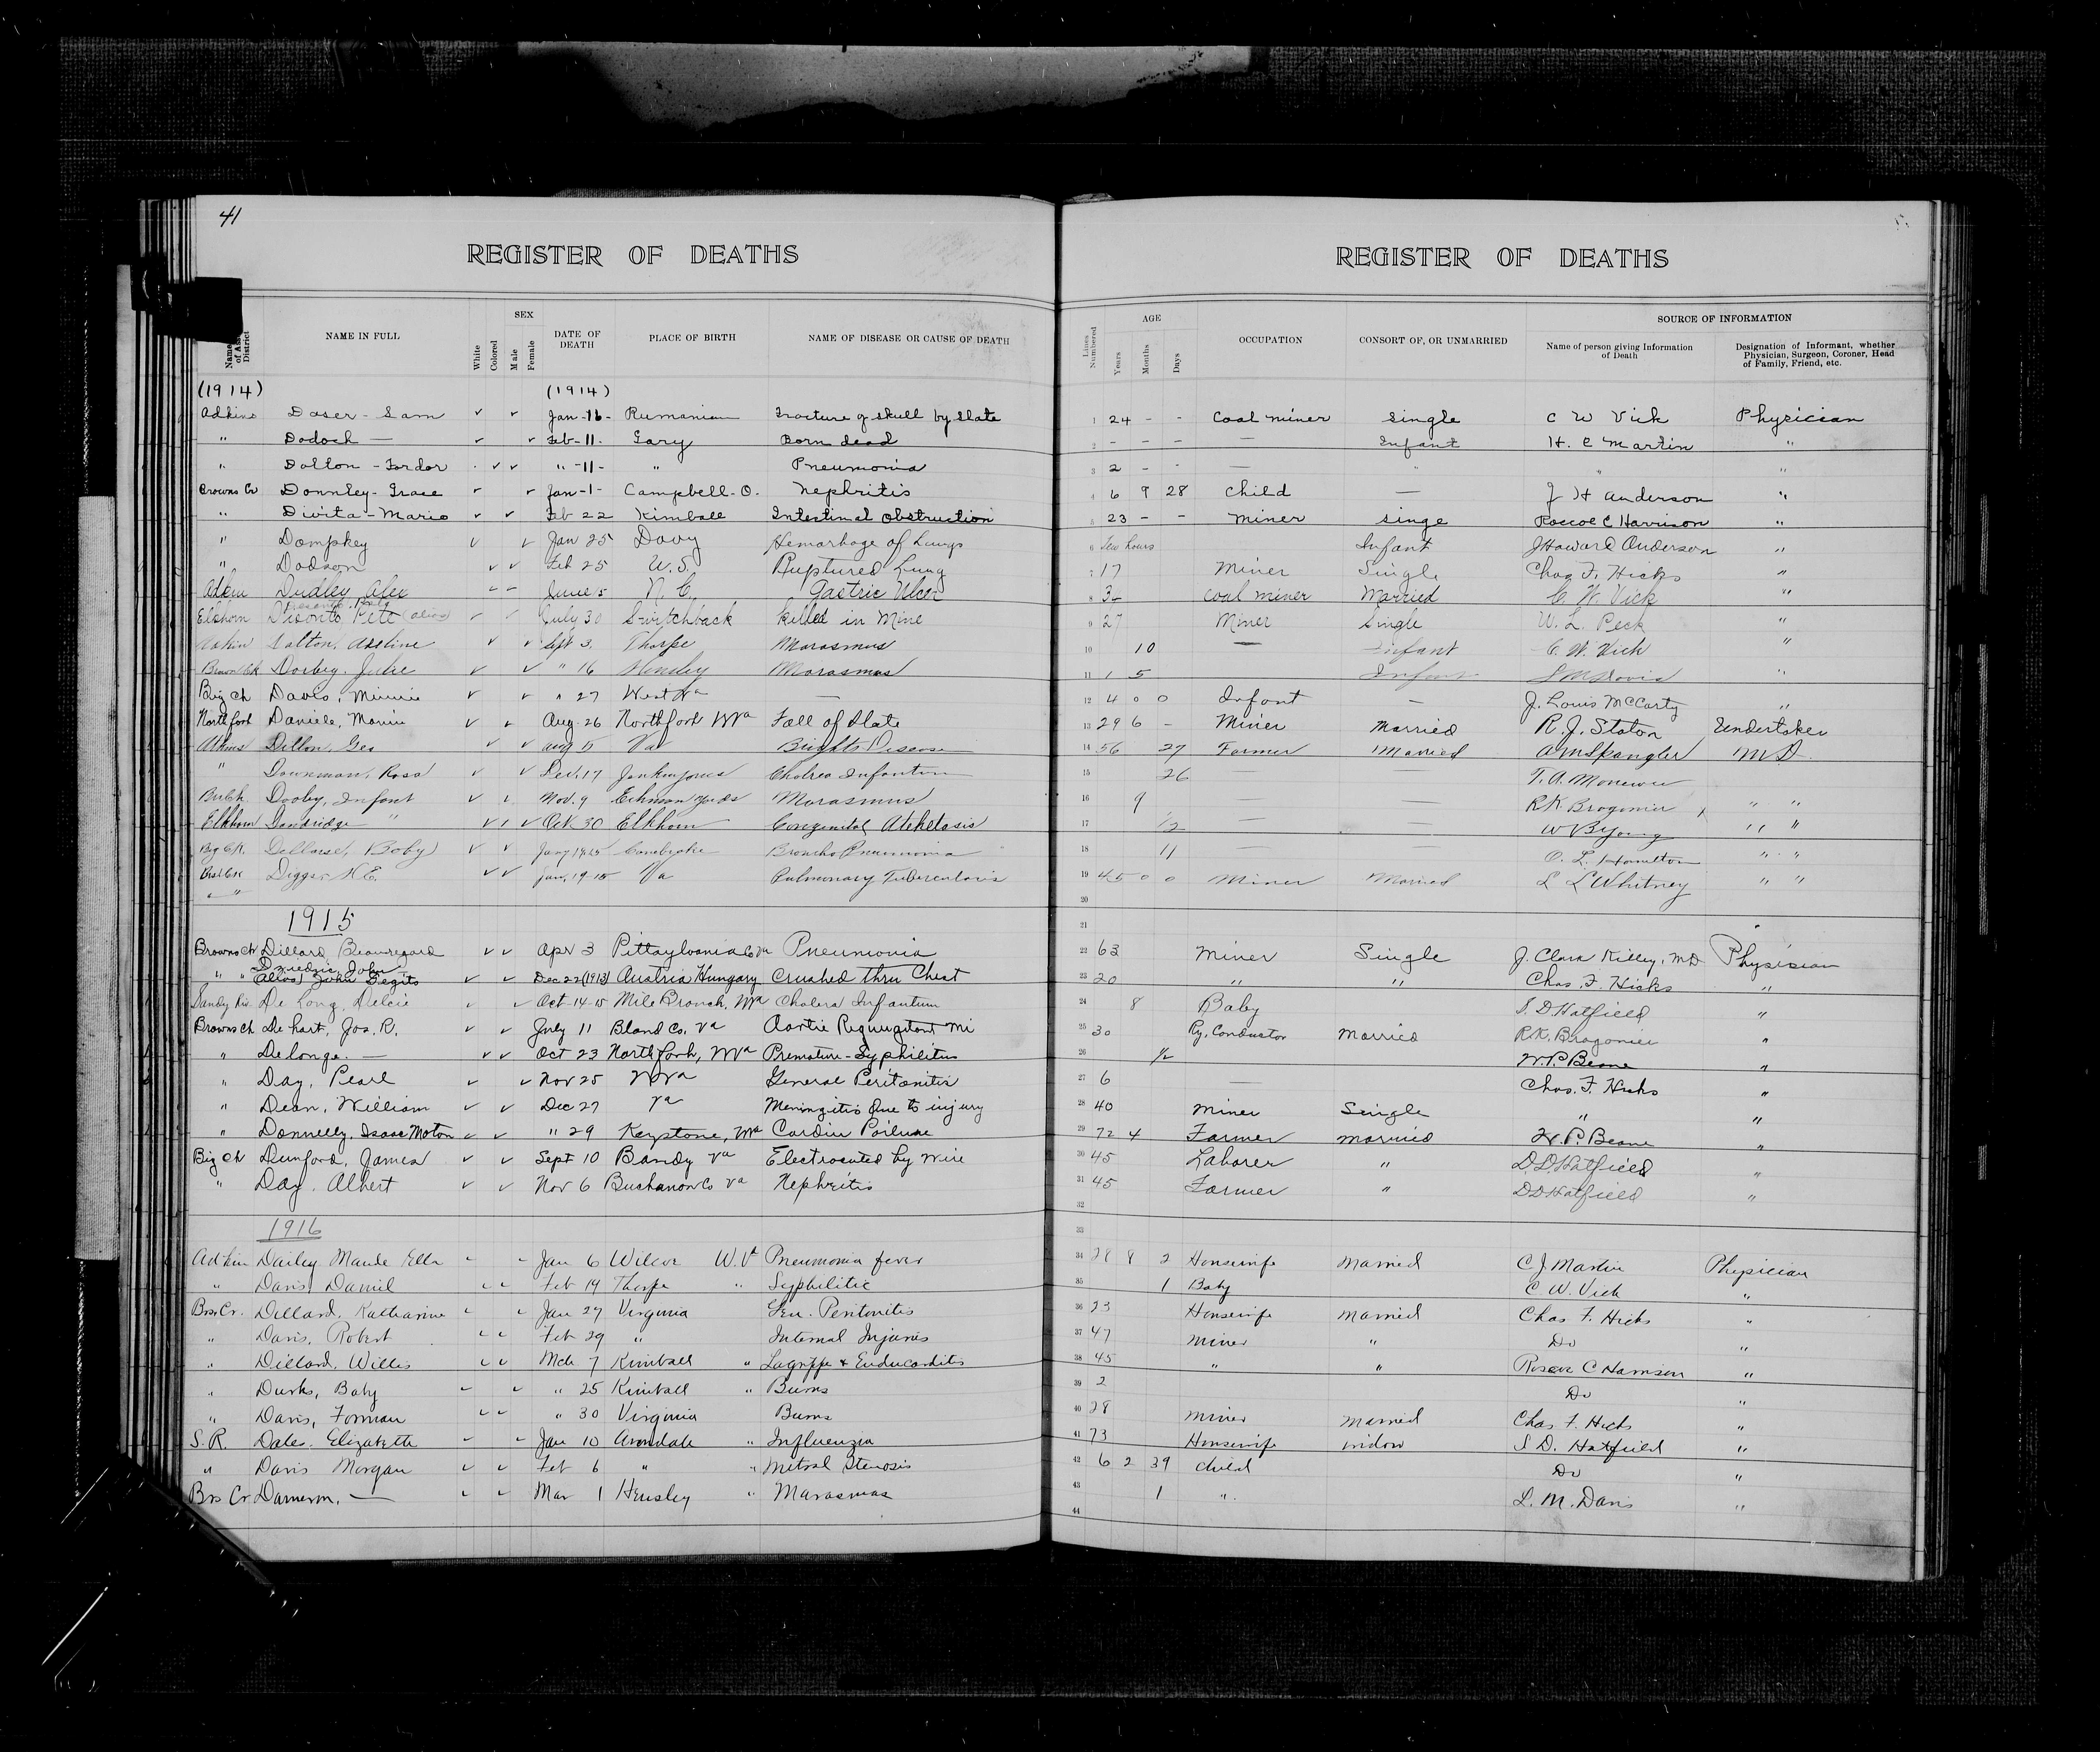 41
REGISTER OF DEATHS
REGISTER OF DEATHS
District NAME IN FULL White Colored SEX Male Female DATE OF DEATH PLACE OF BIRTH NAME OF DISEASE OR CAUSE OF DEATH
Lines Numbered AGE Years Months Days OCCUPATION CONSORT OF, OR UNMARRIED SOURCE OF INFORMATION Name of person giving Information of Death Designation of Informant, whether Physician, Surgeon, Coroner, Head of Family, Friend, etc.
(1914) (1914)
Adkins Daser - Sam ✓ ✓ Jan-16- Rumanian Fracture of skull by slate 1 24 - - Coal miner single C W Vick Physician
" Dodoch — ✓ ✓ Feb-11- Gary Born dead 2 - - - — Infant H. C Martin "
" Dalton - ✓ ✓ " -11- " Pneumonia 3 2 - - — " " "
Browns Cr Donnley - Grace ✓ ✓ Jan-1- Campbell-O. Nephritis 4 6 9 28 child — J H Anderson "
" Divita - Mario ✓ ✓ Feb 22 Kimball Intestinal obstruction 5 23 - - miner singe Roscoe C Harrison "
" Dompkey ✓ ✓ Jan 25 Davy Hemorhage of Lungs 6 Few hours Infant J Howard Anderson "
" Dodson ✓ ✓ Feb 25 U.S. Ruptured Lung 7 17 Miner Single Chas F. Hicks "
Adkin Dudley Alex June 5 N. C. Gastric Ulcer 8 Coal miner Married C. W. Vick "
Elkhorn Disonto Pete (alias) July 30 Switchback killed in Mine 9 27 Miner Single W. L. Peck "
Adkin Dalton, Adeline ✓ ✓ Sept 3. Thorpe Marasmus 10 10 — Infant C. W. Vick "
Brown Ck Dorbey. Julie ✓ ✓ " 16 Hensley Marasmus 11 1 5 Infant "
Big Ck Davis, Minnie ✓ ✓ " 27 West Va — 12 4 0 0 Infant - J. Louis McCarty "
Northfork Daniele, ✓ ✓ Aug-26 Northfork WVa Fall of slate 13 29 6 - Miner Married R. J. Staton Undertaker
Adkins Dillon, Geo ✓ ✓ Aug Va Brights Disease 14 56 27 Farmer Married A M Spangler M D.
" Downman, Rosa ✓ ✓ Dec. 17 Jenkinjones Cholrea Infantum 15 26 — T. A.
Dooby, Infant ✓ Nov. 9 Marasmus 16 9 — — R K. Bragonier " "
Elkhorn Dandridge " ✓ ✓ Oct 30 Elkhorn Congenital Atelectasis 17 1/2 — — W B Young " "
Big Ck. Baby ✓ ✓ Broncho Pneumonia 18 11 — — O. L. Hamilton " "
Digges ✓ ✓ Jan. 19-15 Va Pulmonary Tuberculosis 19 45 0 0 Miner Married L L Whitney " "
" " 20
1915 21
Browns Ck Dillard Beauregard ✓ ✓ Apr 3 Pittsylvania Co Va Pneumonia 22 63 Miner Single J. Clara Killey, MD Physician
" " John
(Alias) John Degits ✓ ✓ Dec 22 (1913) Austria Hungary Crushed thru Chest 23 20 " " Chas. F. Hicks "
Sandy Riv. De Long, Delcie ✓ ✓ Oct-14-15 Mile Branch, WVa Cholera Infantum 24 8 Baby S. D Hatfield "
Browns Ck De hart, Jos. R. ✓ ✓ July 11 Bland Co. Va 25 30 Ry. Conductor Married R.K. Bragonier "
" Delonge. — ✓ ✓ Oct 23 Northfork, WVa Premature - Syphilitus 26 1/2 W. P. Beane "
" Day, Pearl ✓ ✓ Nov 25 WVa General Peritonitis 27 6 — Chas. F. Hicks "
" Dean, William ✓ ✓ Dec 27 Va Meningitis Due to injury 28 40 Miner Single " "
" Donnelly, Isaac Moton ✓ ✓ " 29 Keystone, WVa 29 72 4 Farmer Married W. P. Beane "
Big Ck Dunford, James ✓ ✓ Sept 10 Bandy Va Electrocuted by wire 30 45 Laborer " D. D. Hatfield "
" Day, Albert ✓ ✓ Nov 6 Buchanon Co Va Nephritis 31 45 Farmer " D D Hatfield "
32
1916 33
Adkin Dailey Maude Ella Jan 6 Wilcoe W.Va Pneumonia fever 34 28 8 2 Housewife Married C J. Martin Physician
" Davis, Daniel Feb 19 Thorpe " Syphilitic 35 1 Baby C. W. Vick "
Brs Cr. Dillard, Katharine Jan 27 Virginia Gen. Peritonitis 36 23 Housewife Married Chas F. Hicks "
" Davis, Robert Feb 29 " Internal Injuries 37 47 Miner " Do "
" Dillard, Willis Mch 7 Kimball " Lagrippe & Endocarditis 38 45 " " Roscoe C Harrison "
" Durks, Baby " 25 Kimball " Burns 39 2 Do "
" Davis, Forman " 30 Virginia Burns 40 28 Miner Married Chas F. Hicks "
S. R. Dales, Elizabeth Jan 10 Avondale " Influenzia 41 73 Housewife widow S D. Hatfield "
" Davis Morgan Feb 6 " " Metral Stenosis 42 6 2 39 child Do "
Brs Cr Dameron, — Mar 1 Hensley " Marasmas 43 1 " L. M. Davis "
44